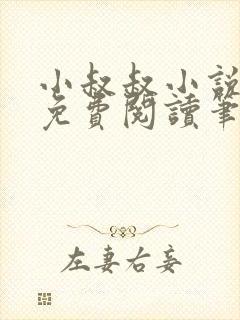 小叔叔小說
免費閱讀筆
左妻右妾